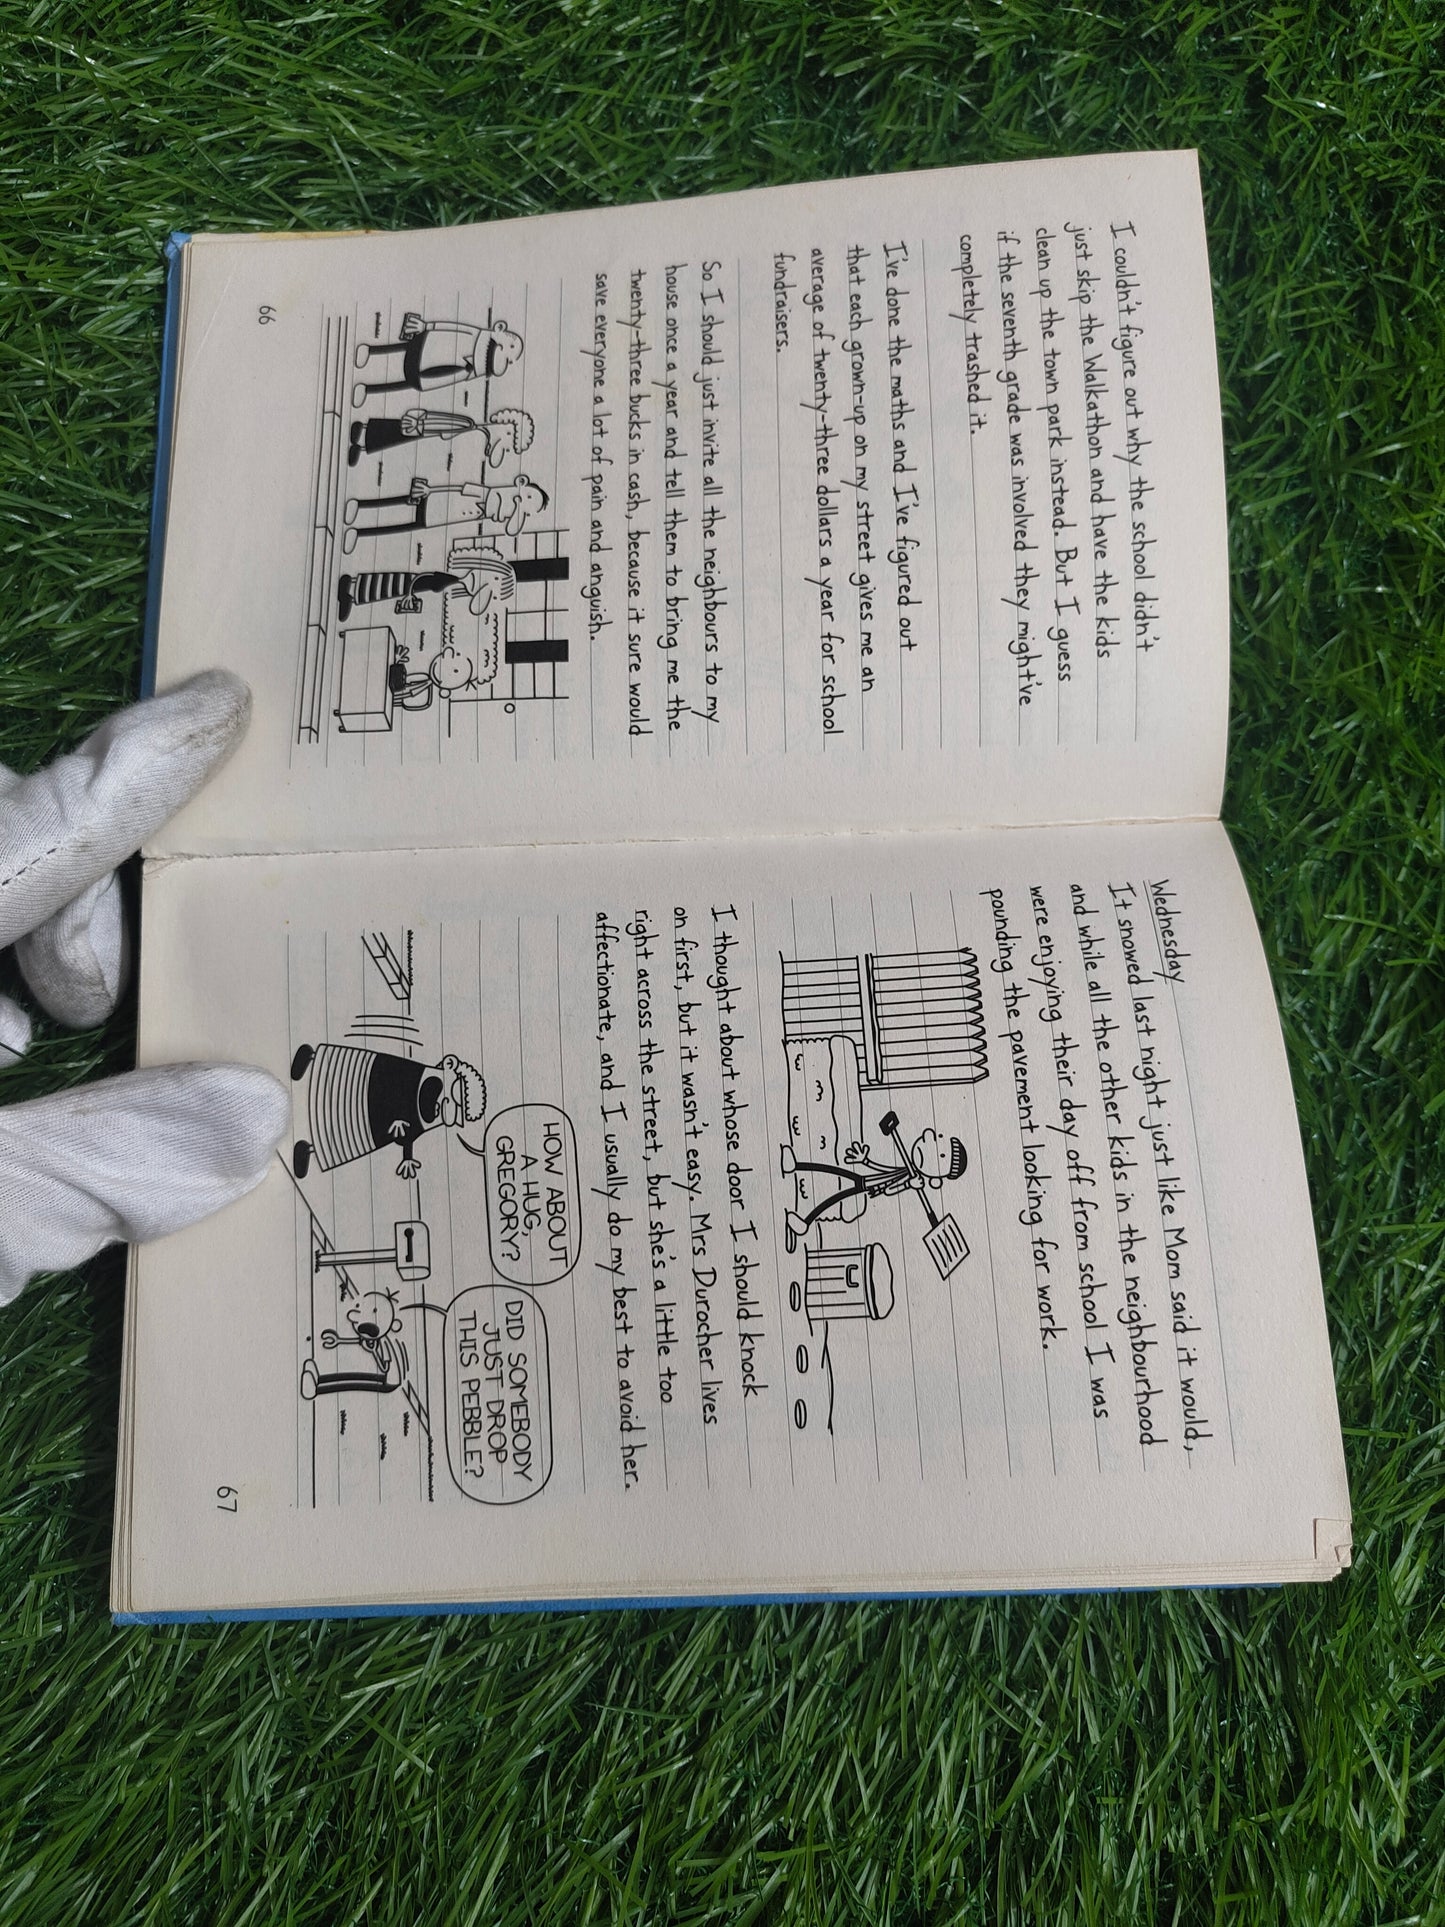 I couldn't figure out why the school didn't
just skip the Walkathon and have the kids
clean up the town park instead. But I guess
if the seventh grade was involved they might've
completely trashed it.
I've done the maths and I've figured out
that each grown-up on my street gives me an
average of twenty-three dollars a year for school
fundraisers.
So I should just invite all the neighbours to my
house once a year and tell them to bring me the
twenty-three bucks in cash, because it sure would
save everyone a lot of pain and anguish.
66
Wednesday
It snowed last night just like Mom said it would,
and while all the other kids in the neighbourhood
were enjoying their day off from school I was
pounding the pavement looking for work.
I thought about whose door I should knock
on first, but it wasn't easy. Mrs Durocher lives
right across the street, but she's a little too
affectionate, and I usually do my best to avoid her.
HOW ABOUT
A HUG,
GREGORY?
DID SOMEBODY
JUST DROP
THIS PEBBLE?
67